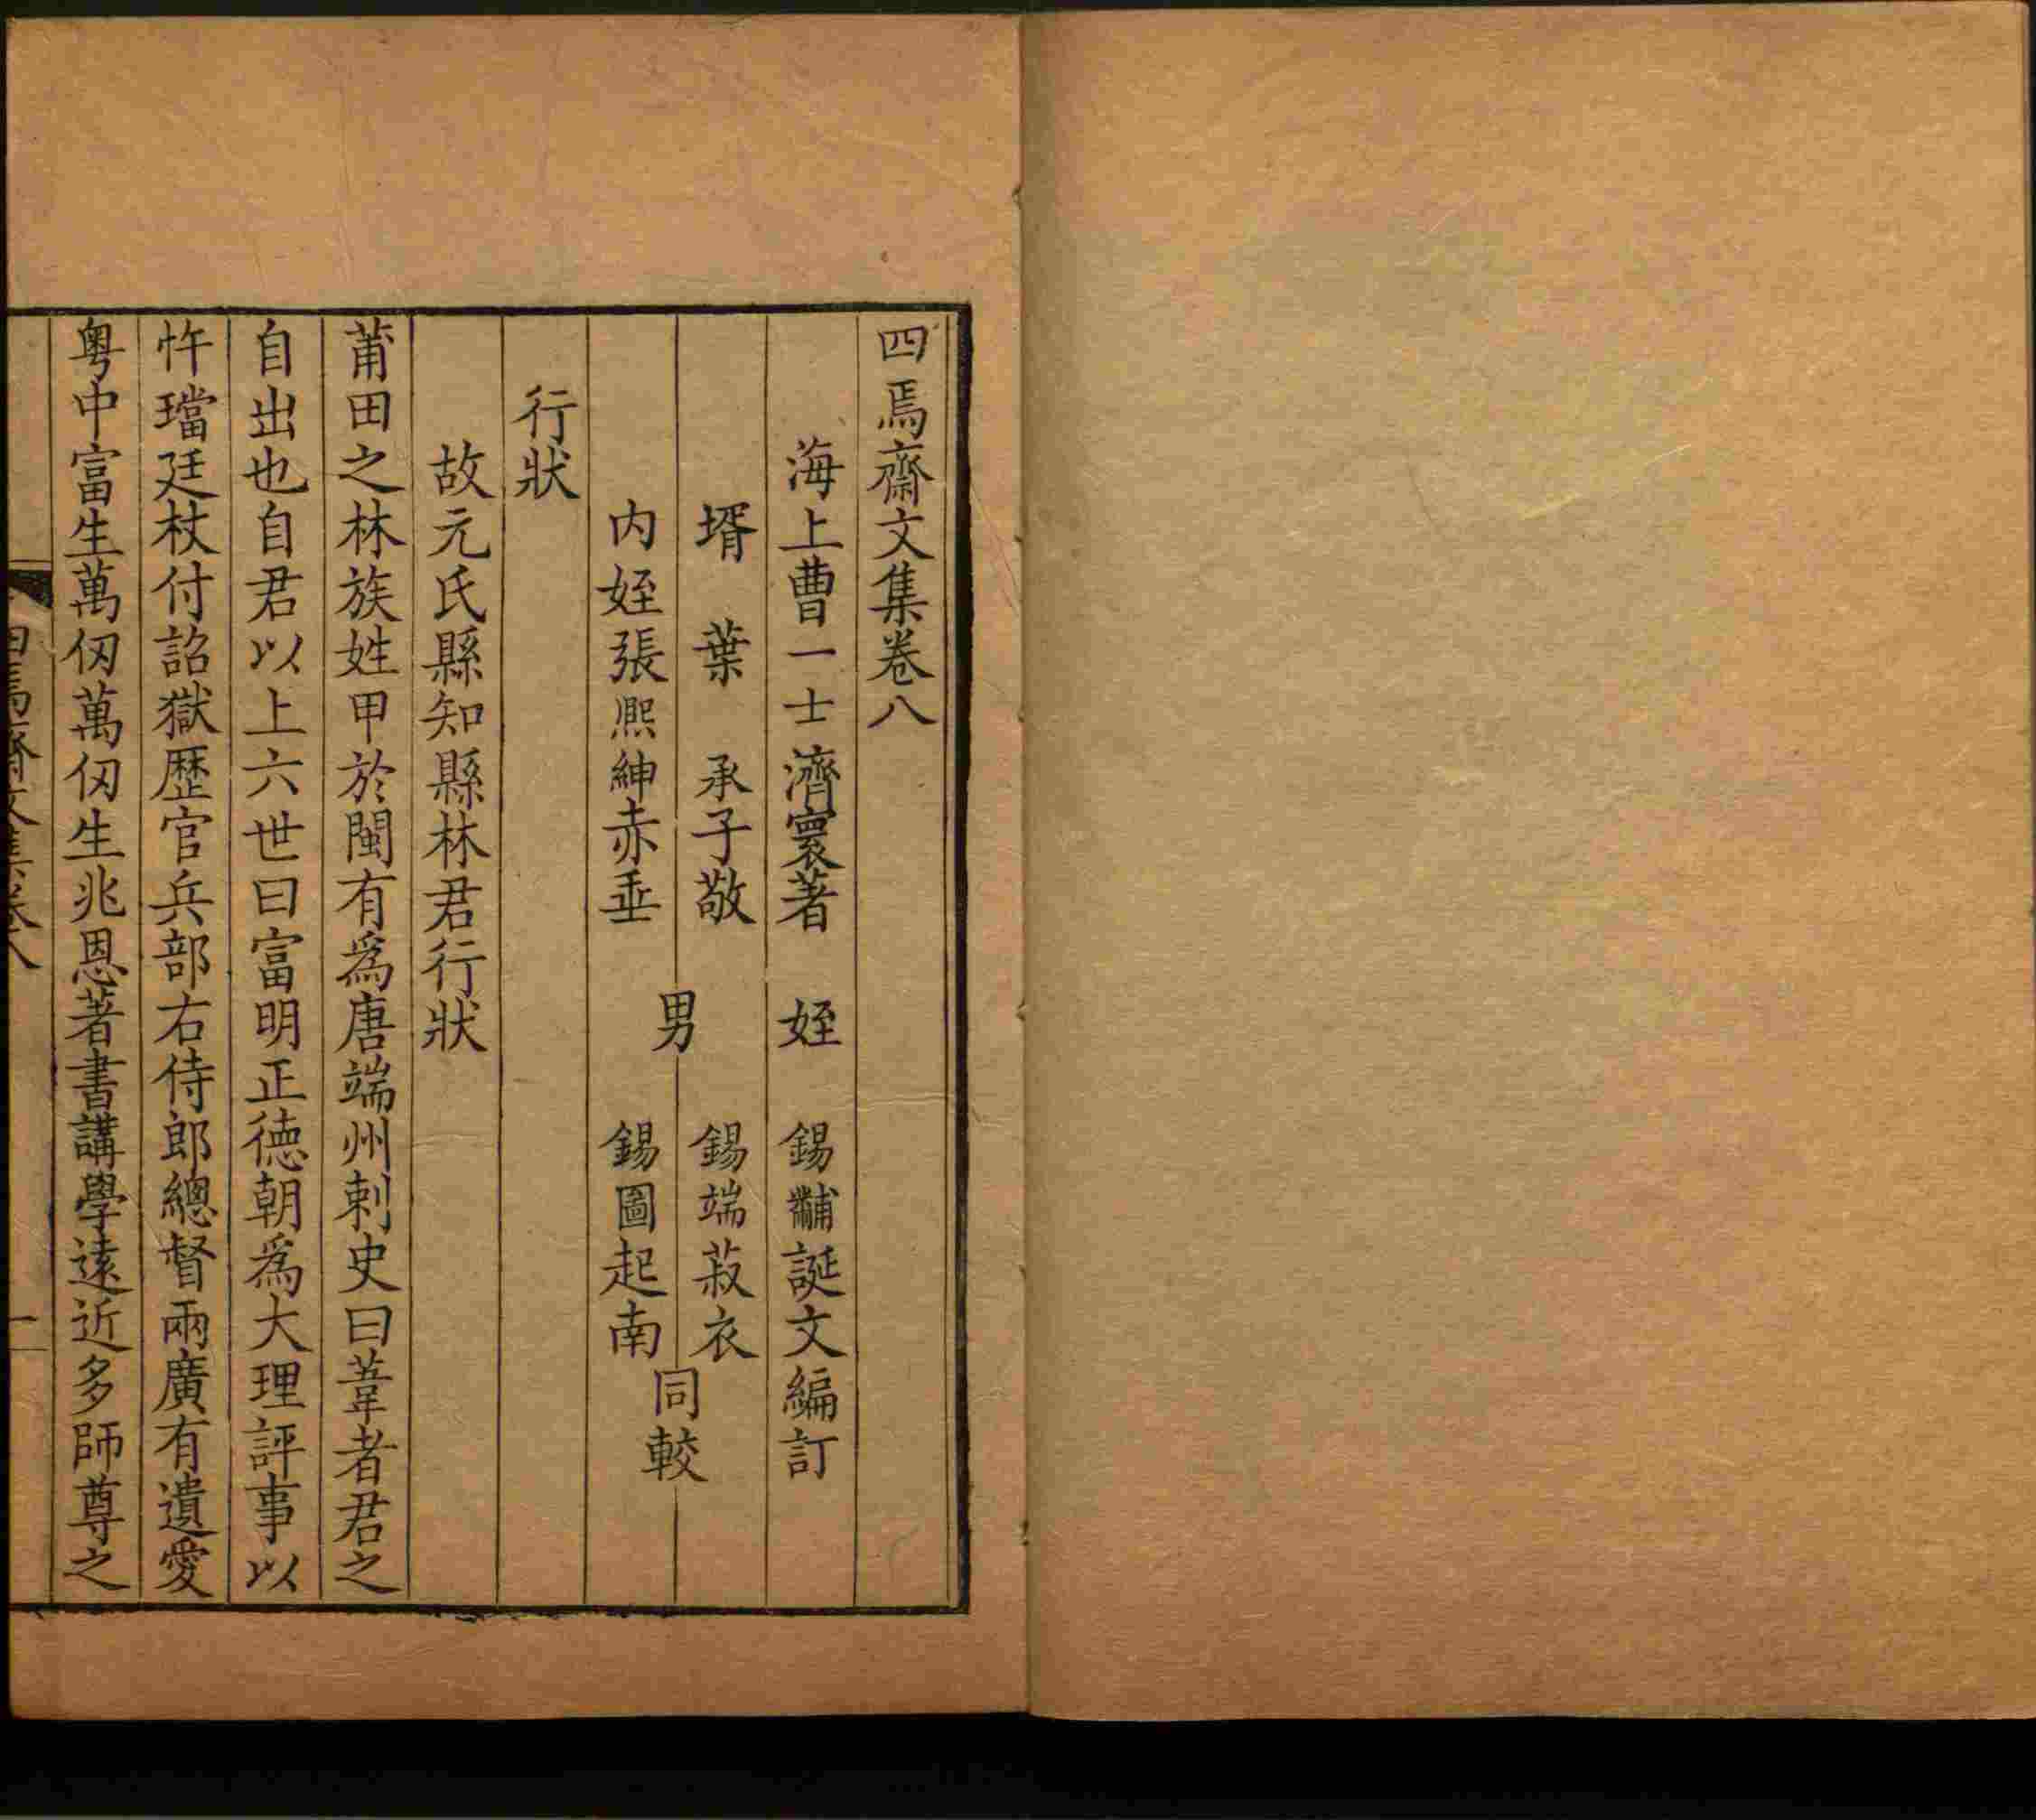 四焉齋文集卷八
海上曹一士濟寰著　姪　錫黼誕文編訂
壻　葉　承子敬　男　錫端菽衣　同較
内姪張熈紳赤垂　錫圖起南
行狀
故元氏縣知縣林君行狀
莆田之林族姓甲於閩有爲唐端州刺史曰葦者君之
自出也自君以上六世曰富明正德朝爲大理評事以
忤璫廷杖付詔獄歴官兵部右侍郎總督兩廣有遺愛
粤中富生萬仭萬仭生兆恩著書講學逺近多師尊之
四焉齋文集卷八　一